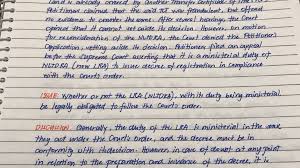 land is already covered by another Transfer Certificate of Title.
Petitioners claimed that the said TCT was fraudulent, but offered
no evidence to counter the same. After several hearings, the Court
opined that it cannot set aside its decision. However, on motion
for reconsideration of the NLTDRA, the Court denied the Petitioners'
Application, setting aside its decision. Petitioners filed an appeal
before the Supreme Court asserting that it is a ministerial duty of
NLTDRA (now LRA) to issue decree of registration in compliance
with the Court's order.
ISSUE: Whether or not the LRA (NLTDRA), with its duty being ministerial
be legally obligated to follow the Court's order.
DECISION: Generally, the duty of the LRA is ministerial in the sense
they act under the Court's orders, and the decree must be in
conformity with the decision. However, in case of doubt at any point
in relation to the preparation and issuance of the decree, it is